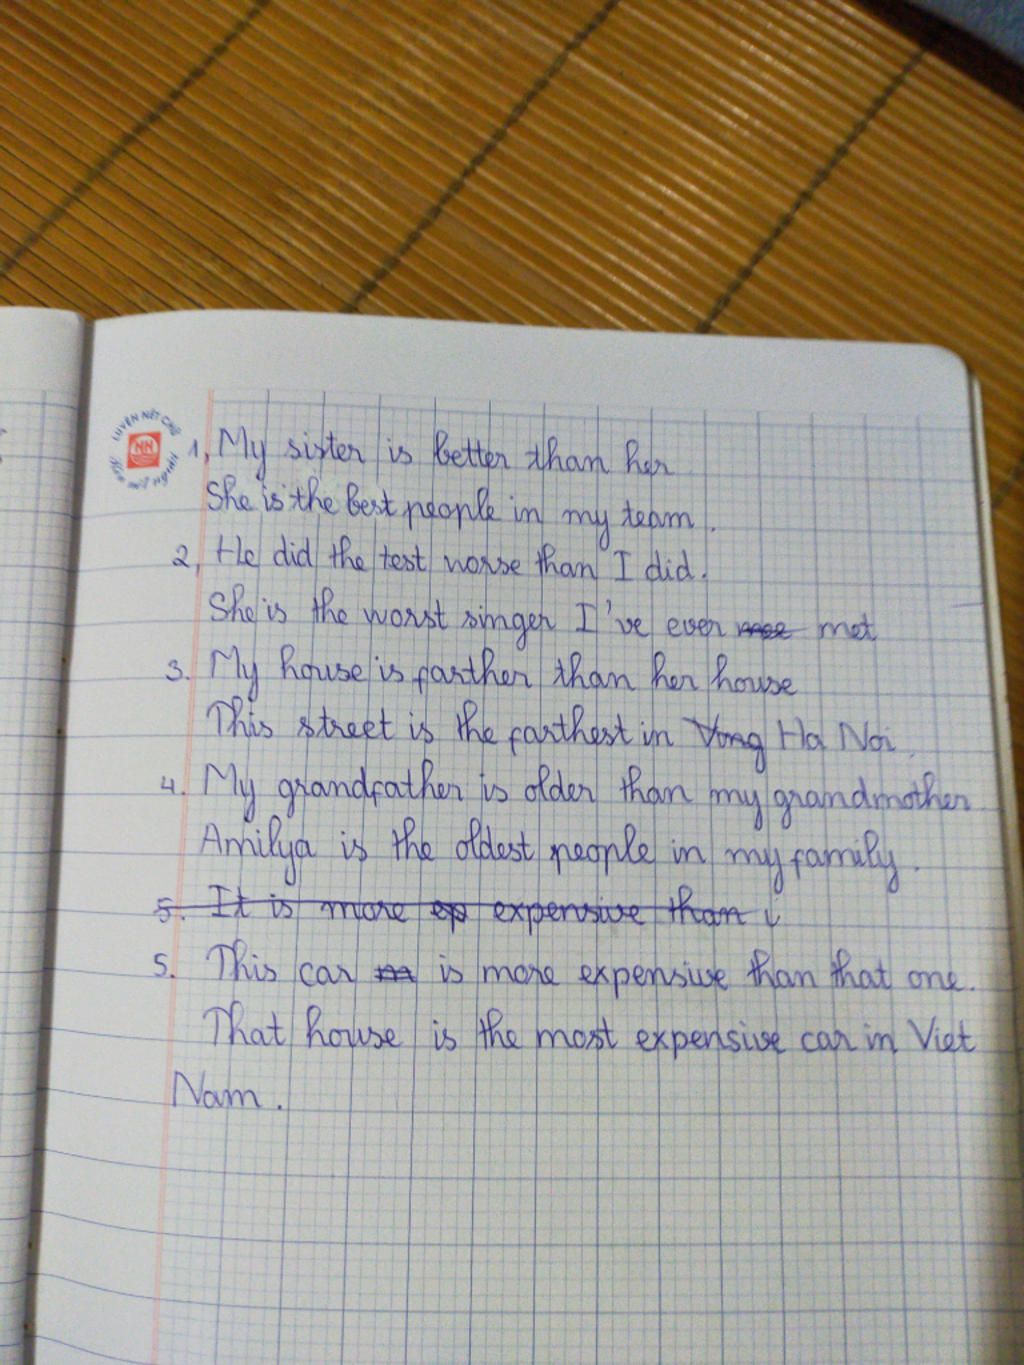 LUYỆN NÉT CHỮ
NH
1, My sister is better than her
She is the best people in my team.
2, He did the test worse than I did.
She is the worst singer I've ever met
3. My house is farther than her house
This street is the farthest in Vong Ha Noi.
4. My grandfather is older than my grandmother
Amilya is the oldest people in my family.
5. It is more ep expensive than i
5. This car m is more expensive than that one.
That house is the most expensive car in Viet
Nam.